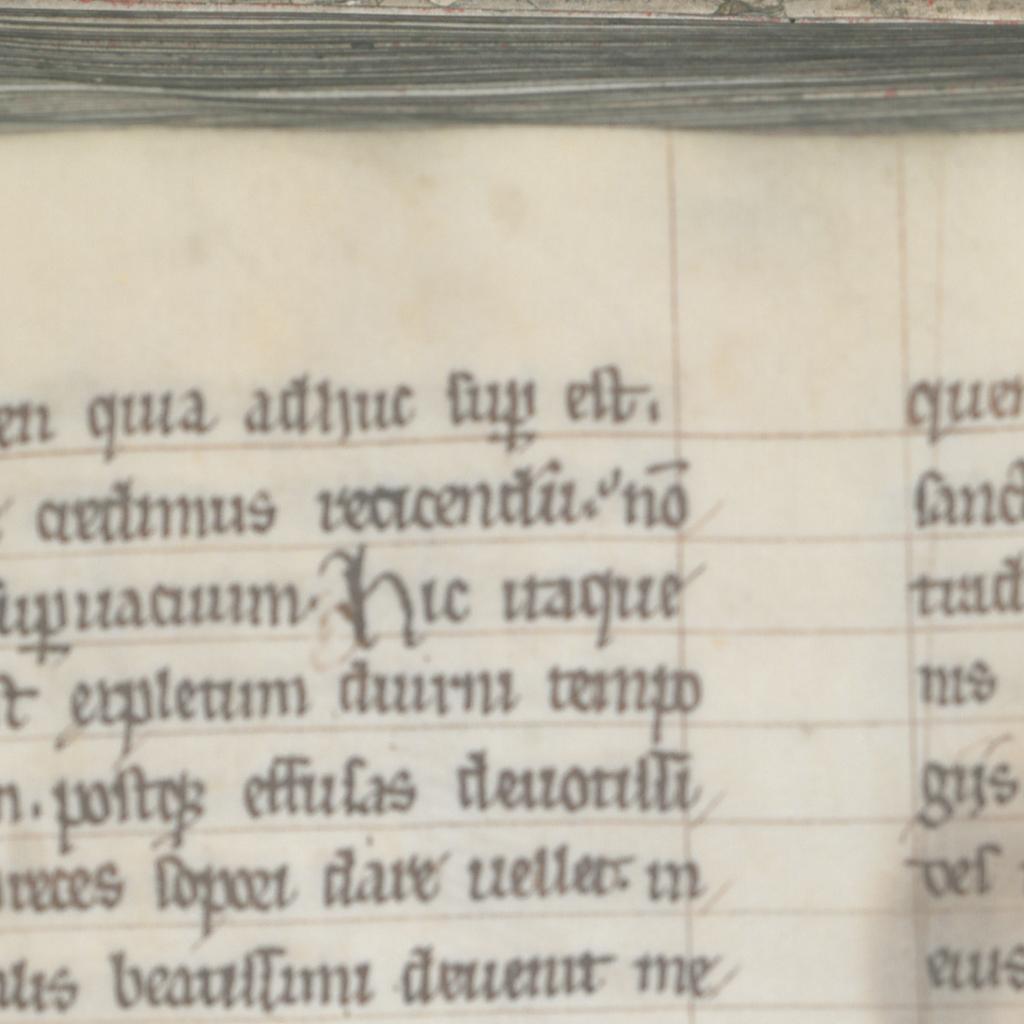 en quia adhuc suꝑ est.
credimus reticendū. nō
suꝑuacuum. Hic itaque
st expletum diurni tempo
n. postqꝫ effusas deuotissi
preces sopori dare uellet in
alis beatissimi deuenit me
quem
sanc
trad
nis
gijs
ues
eius